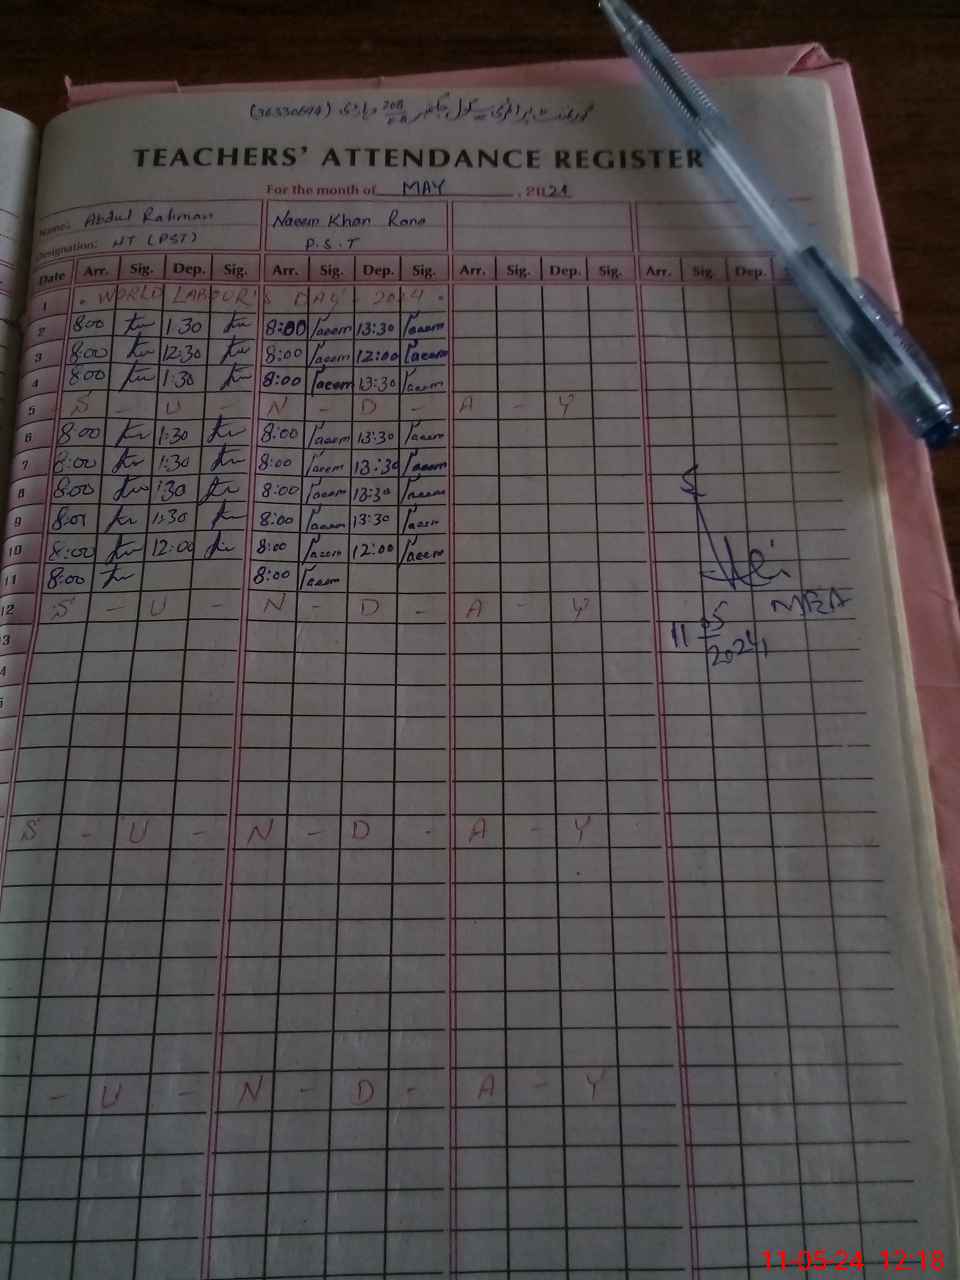 گورنمنٹ پرائمری سکول چک نمبر 208 E.B وہاڑی (36330694)
TEACHERS' ATTENDANCE REGISTER
For the month of MAY, 2024
Name: Abdul Rahman Naeem Khan Rana
Designation: HT (PST) P.S.T
Date Arr. Sig. Dep. Sig. Arr. Sig. Dep. Sig. Arr. Sig. Dep. Sig. Arr. Sig. Dep.
1 WORLD LABOUR'S DAY - 2024
2 8:00 1:30 8:00 Naeem 13:30 Naeem
3 8:00 12:30 8:00 Naeem 12:00 Naeem
4 8:00 1:30 8:00 Naeem 13:30 Naeem
5 S - U - N - D - A - Y
6 8:00 1:30 8:00 Naeem 13:30 Naeem
7 8:00 1:30 8:00 Naeem 13:30 Naeem
8 8:00 1:30 8:00 Naeem 13:30 Naeem
9 8:01 1:30 8:00 Naeem 13:30 Naeem
10 8:00 12:00 8:00 Naeem 12:00 Naeem
11 8:00 8:00 Naeem
12 S - U - N - D - A - Y
MEA
11 05 2024
3
4
5
S - U - N - D - A - Y
- U - N - D - A - Y
11-05-24 12:18